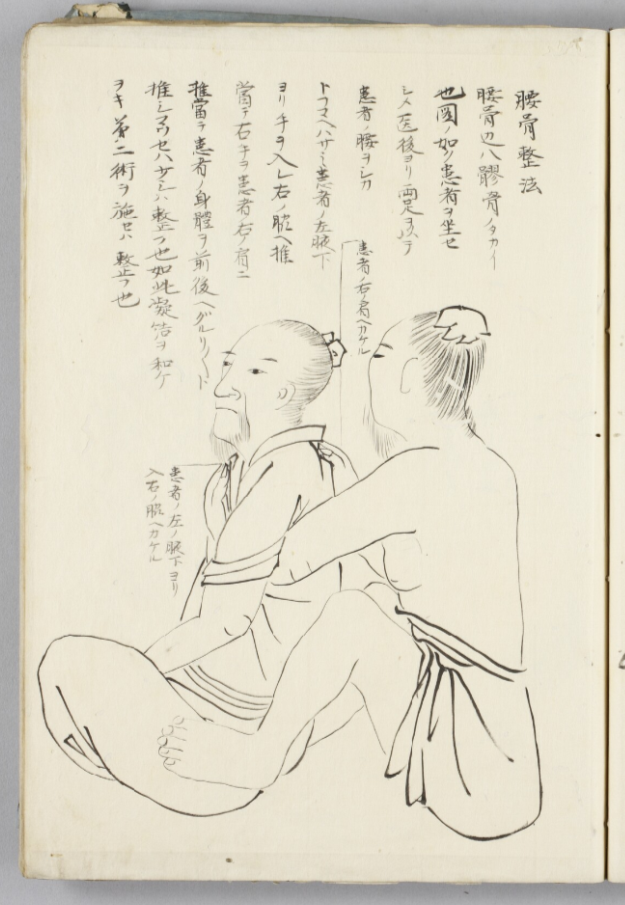 腰骨整法
腰骨辺ハ髎骨ノタカイ
也図ノ如ク患者ヲ坐セ
シメ医後ヨリ両足ヲ以テ
患者ノ腰ヲシカ
トフマヘハサミ患者ノ左腋下
ヨリ手ヲ入レ右ノ腕ヘ推
當テ右手ヲ患者右ノ肩ニ
推當テ患者ノ身體ヲ前後ヘグルリ〱ト
推シマワセハサシハ整フ也如此凝結ヲ和ケ
ヲキ第二術ヲ施セハ整フ也
患者ノ右ノ肩ヘカケル
患者ノ左ノ腋下ヨリ
入右ノ腕ヘカケル